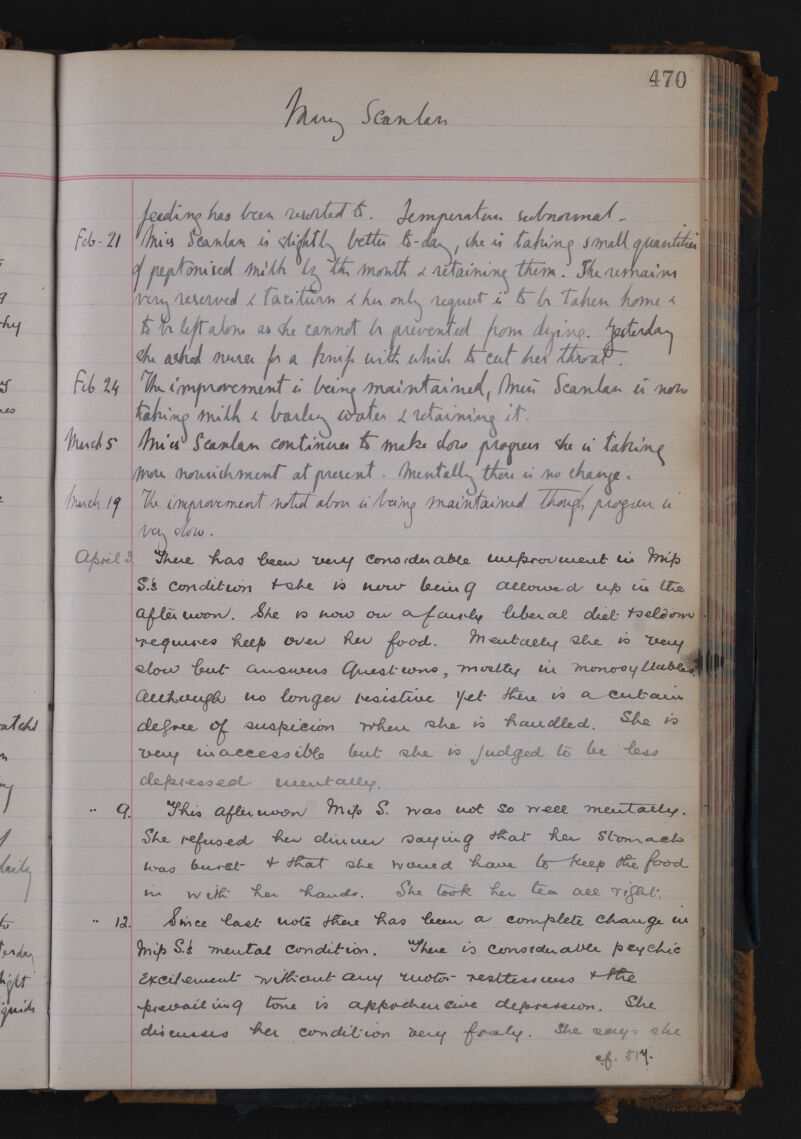 470
Mary Scanlan
feeding has been resorted to. Temperature subnormal -
Feb. 21 Miss Scanlan is slightly better to-day, she is taking small quantities
of peptonised milk by the mouth & retaining them. She remains
very reserved & taciturn & her only request is to be taken home &
to be left alone as she cannot be prevented from dying. Yesterday
she asked nurse for a knife with which to cut her throat.
Feb 24 The improvement is being maintained, Miss Scanlan is now
taking milk & barley water & retaining it.
March 5 Miss Scanlan continues to make slow progress she is taking
more nourishment at present. Mentally there is no change.
March 19 The improvement noted above is being maintained though progress is
very slow.
April 3. There has been very considerable improvement in Miss
S.'s condition & she is now being allowed up in the
afternoon. She is now on a fairly liberal diet & seldom
requires help over her food. Mentally she is very
slow but answers questions, mostly in monosyllables.
Although no longer resistive yet there is a certain
degree of suspicion when she is handled. She is
very inaccessible but she is judged to be less
depressed mentally.
" 9. This afternoon Miss S. was not so well mentally.
She refused her dinner saying that her stomach
was burst & that she would have to keep the food
in with her hands. She took her tea all right.
" 12. Since last note there has been a complete change in
Miss S.'s mental condition. There is considerable psychic
excitement without any motor restlessness & the
prevailing tone is apprehensive depression. She
discusses her condition very freely. She says she
cf. 517.